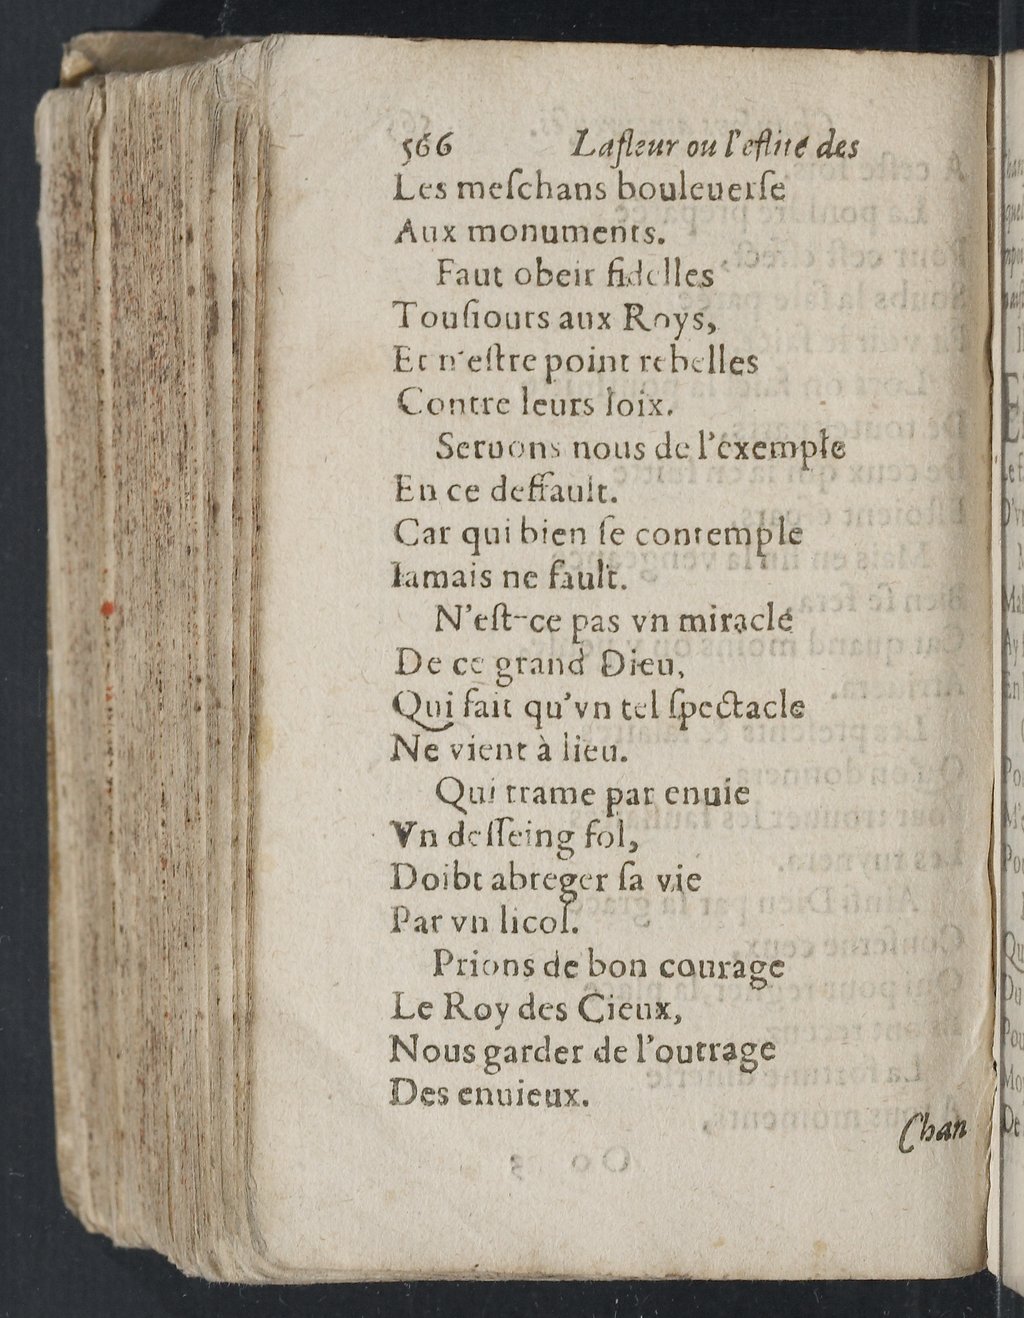 566 Lafleur ou l'eſlité des
Les meſchans bouleuerſe
Aux monuments.
Faut obeir fidelles
Touſiours aux Roys,
Et n'eſtre point rebelles
Contre leurs loix.
Seruons nous de l'éxemple
En ce deffault.
Car qui bien ſe contemple
Iamais ne fault.
N'eſt-ce pas vn miraclé
De ce grand Dieu,
Qui fait qu'vn tel ſpectacle
Ne vient à lieu.
Qui trame par enuie
Vn deſſeing fol,
Doibt abreger ſa vie
Par vn licol.
Prions de bon courage
Le Roy des Cieux,
Nous garder de l'outrage
Des enuieux.
Chan